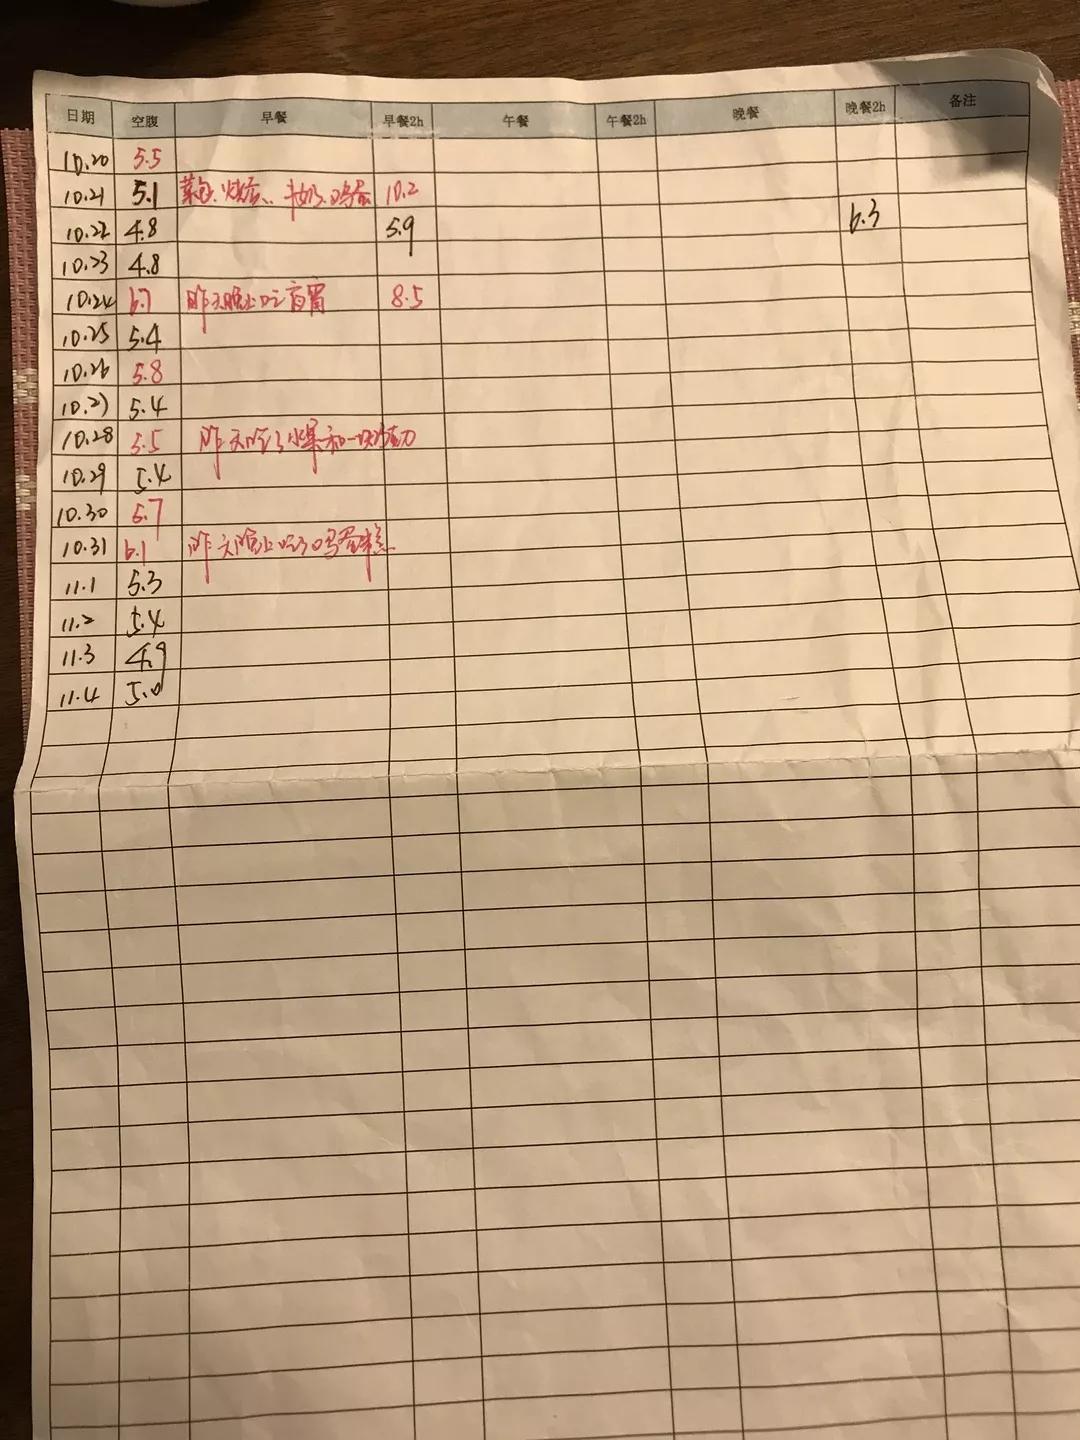 日期 空腹 早餐 早餐2h 午餐 午餐2h 晚餐 晚餐2h 备注
10.20 5.5
10.21 5.1 菜包、 牛奶、鸡蛋 10.2
10.22 4.8 5.9 6.3
10.23 4.8
10.24 6.7 昨天晚上吃 8.5
10.25 5.4
10.26 5.8
10.27 5.4
10.28 5.5 昨天吃了水果和一块
10.29 5.4
10.30 5.7
10.31 6.1 昨天晚上吃了鸡蛋糕
11.1 5.3
11.2 5.4
11.3 4.9
11.4 5.0